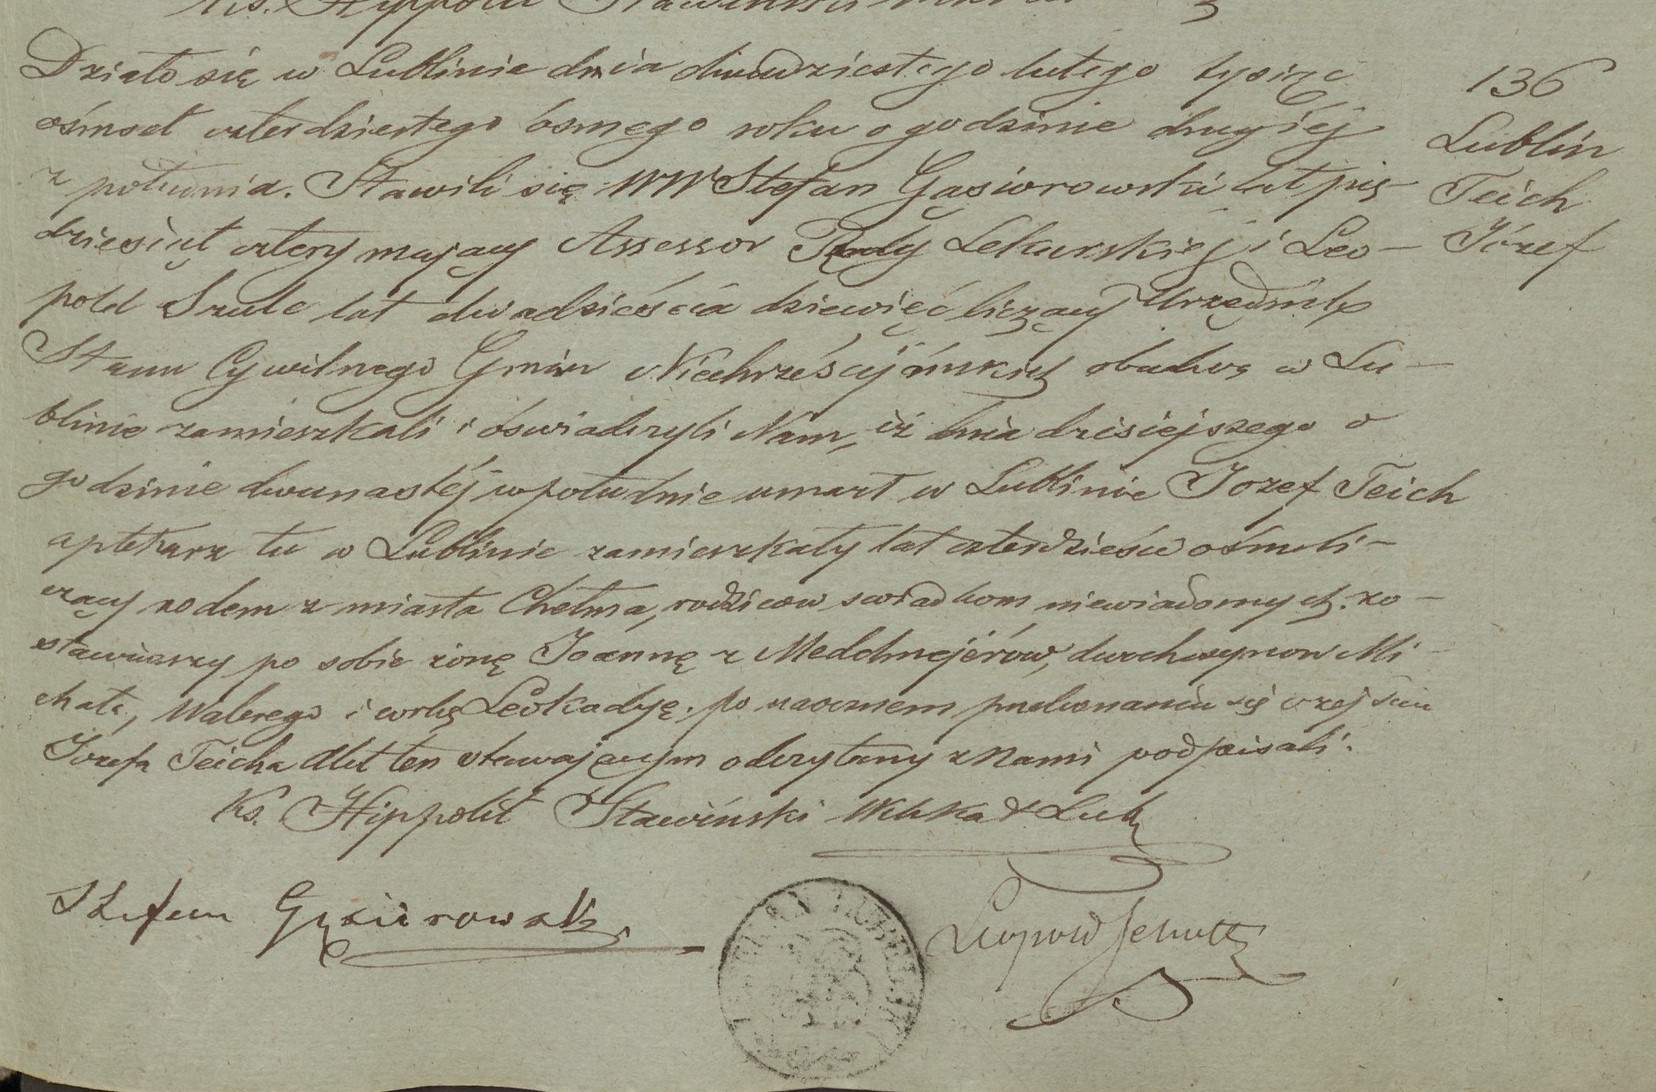 Ks. Hippolit Sławiński
Działo się w Lublinie dnia dwudziestego lutego tysiąc
ośmset czterdziestego ósmego roku o godzinie drugiéj
z południa. Stawili się WW Stefan Gąsiorowski lat pię-
dziesiąt cztery mający Assessor Rady Lekarskiej i Leo-
pold Szulc lat dwadzieścia dziewięć liczący Urzędnik
Stanu Cywilnego Gmin Niechrześcijańskich obadwa w Lu-
blinie zamieszkali i óswiadczyli Nam, iż dnia dzisiejszego o
godzinie dwunastéj w południe umarł w Lublinie Jozef Teich
aptekarz tu w Lublinie zamieszkały lat czterdzieście ośm li-
czący rodem z miasta Chełma, rodziców swiadkom niewiadomych. zo-
stawiwszy po sobie żonę Joannę z Medchnejérów, dwoch synow Mi-
chała, Walerego i corkę Leokadyę. po naocznem przekonaniu się o zejściu
Józefa Teicha Akt ten stawającym odczytany z Nami podpisali.
Ks. Hippolit Sławiński
Stefan Gąsiorowski
Leopold Schultz
136
Lublin
Teich
Józef